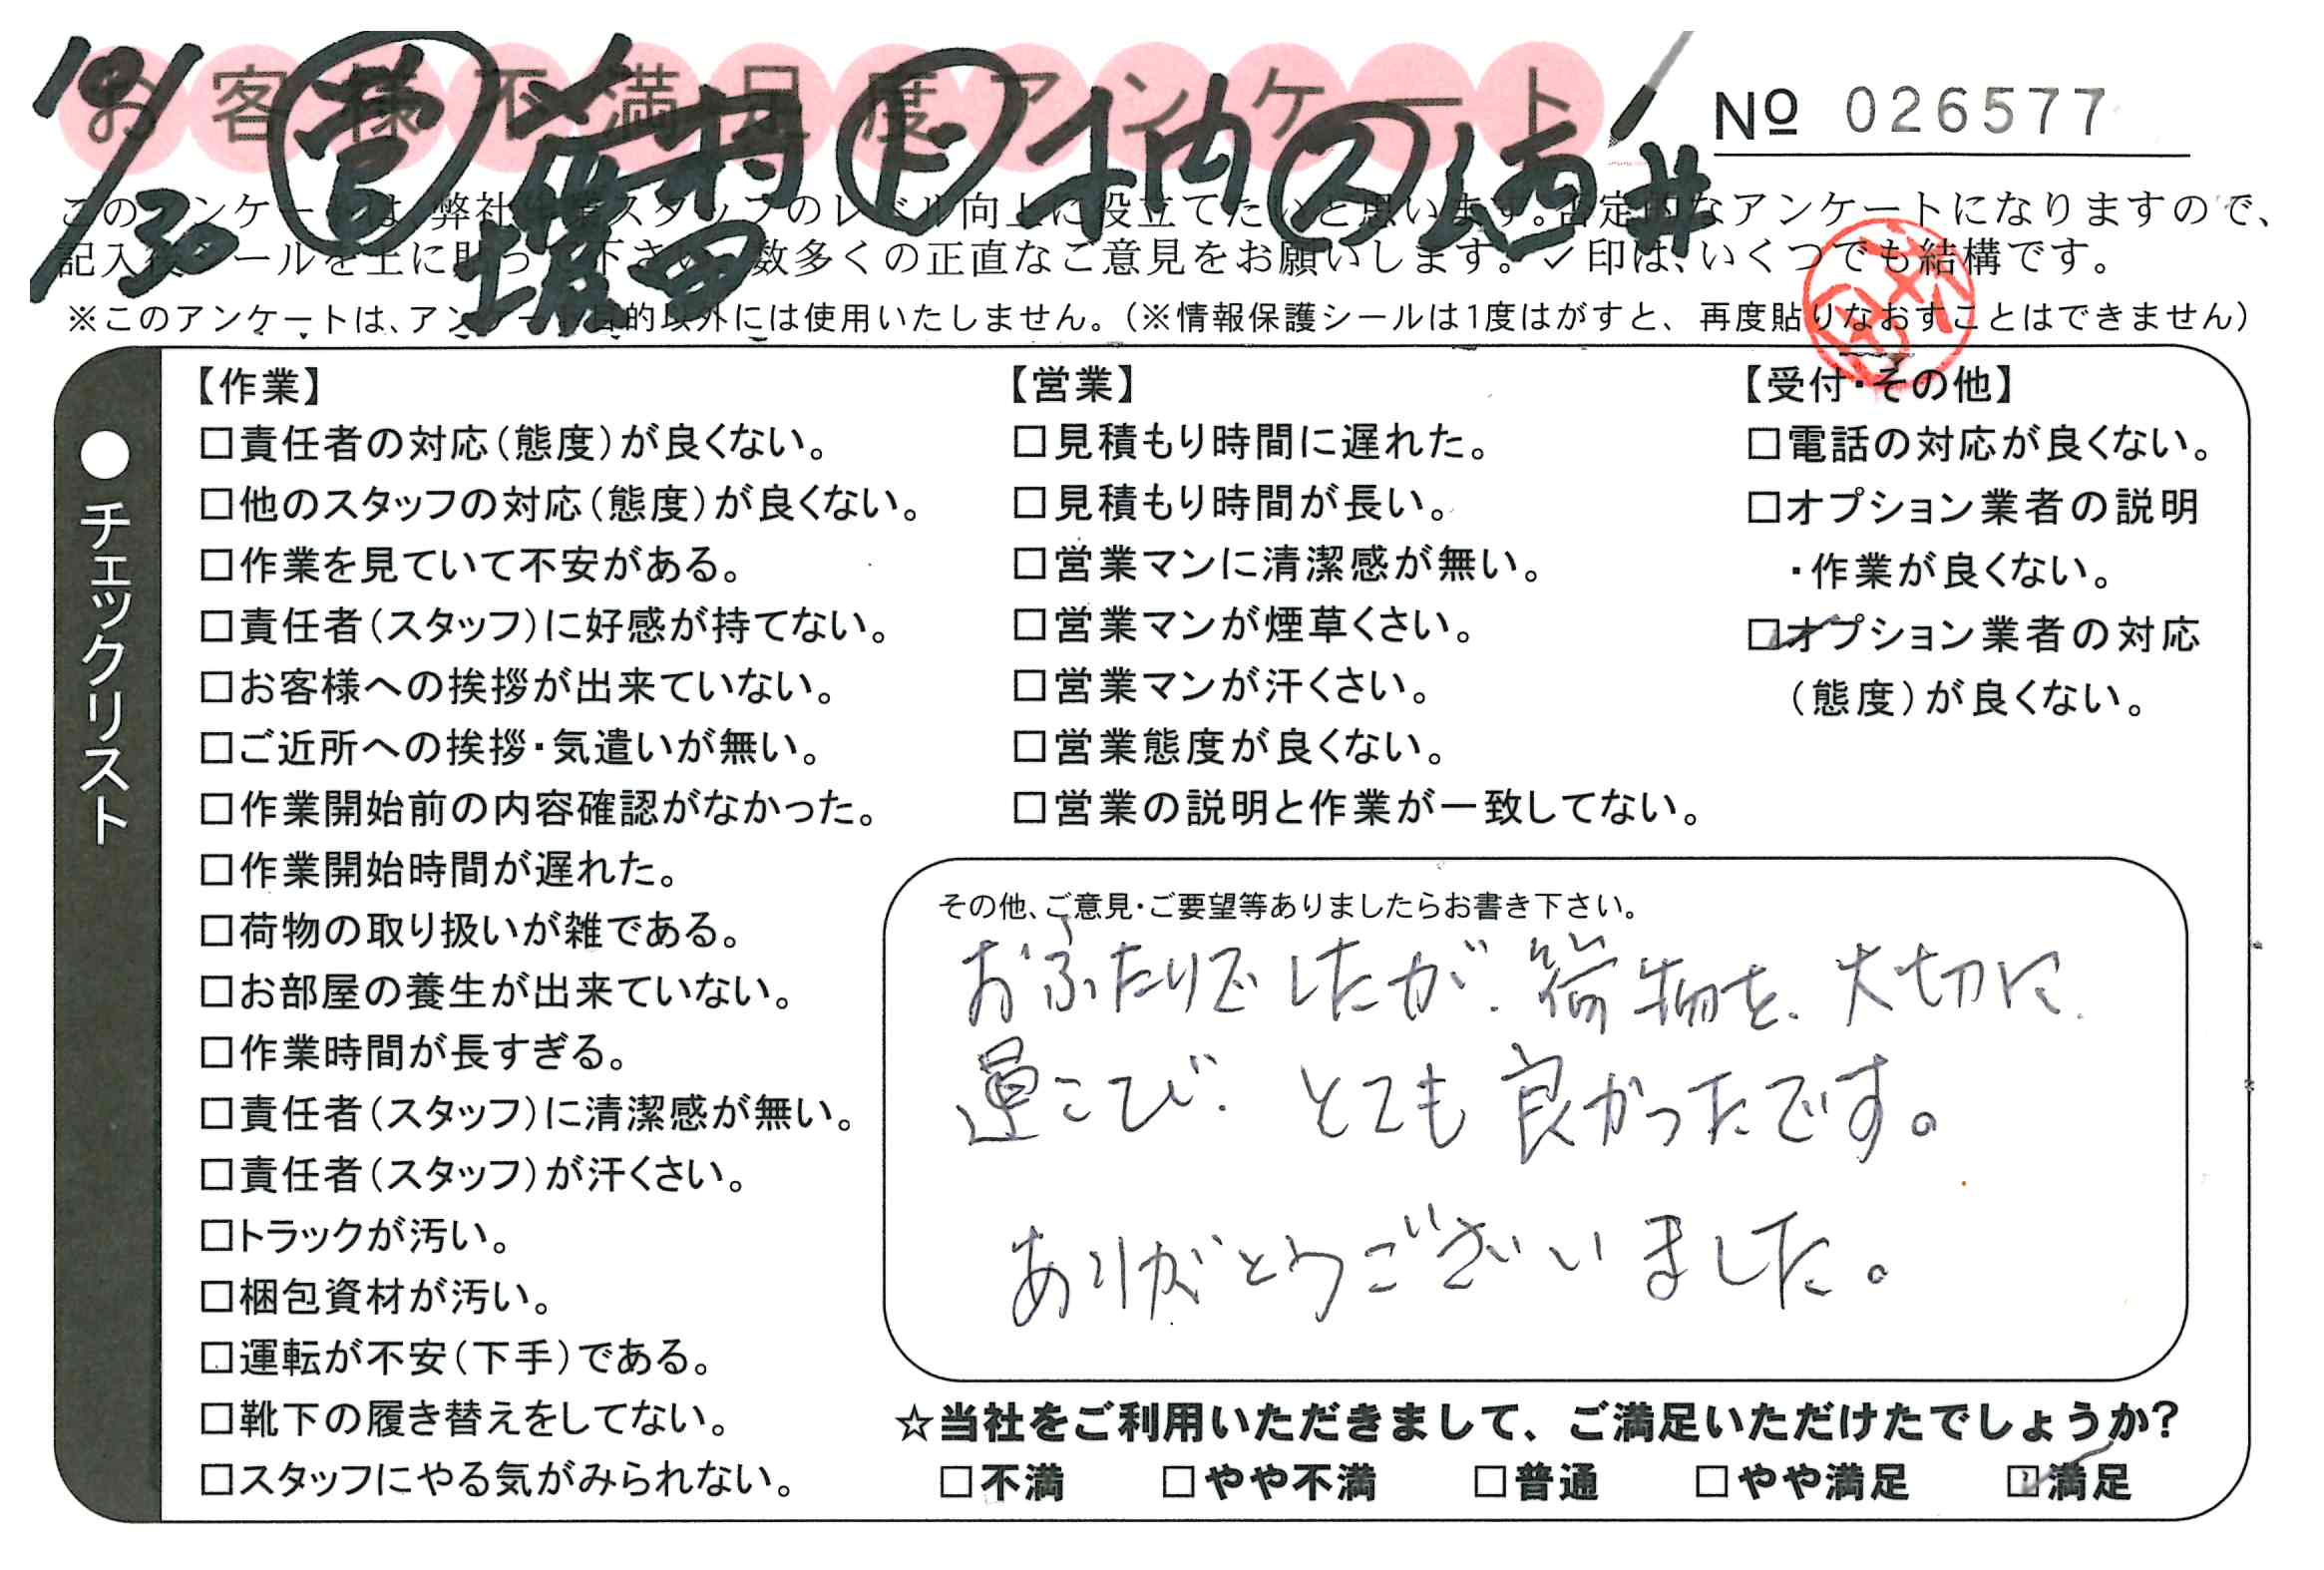 お客様不満足度アンケート
10/30 営 堀田 ド 竹内 ス 酒井
№ 026577
このアンケートは、弊社作業スタッフのレベル向上に役立てたいと思います。否定的なアンケートになりますので、
記入後シールを上に貼って下さい。数多くの正直なご意見をお願いします。✓印は、いくつでも結構です。
※このアンケートは、アンケート目的以外には使用いたしません。（※情報保護シールは1度はがすと、再度貼りなおすことはできません）
●チェックリスト
【作業】
□責任者の対応（態度）が良くない。
□他のスタッフの対応（態度）が良くない。
□作業を見ていて不安がある。
□責任者（スタッフ）に好感が持てない。
□お客様への挨拶が出来ていない。
□ご近所への挨拶・気遣いが無い。
□作業開始前の内容確認がなかった。
□作業開始時間が遅れた。
□荷物の取り扱いが雑である。
□お部屋の養生が出来ていない。
□作業時間が長すぎる。
□責任者（スタッフ）に清潔感が無い。
□責任者（スタッフ）が汗くさい。
□トラックが汚い。
□梱包資材が汚い。
□運転が不安（下手）である。
□靴下の履き替えをしてない。
□スタッフにやる気がみられない。
【営業】
□見積もり時間に遅れた。
□見積もり時間が長い。
□営業マンに清潔感が無い。
□営業マンが煙草くさい。
□営業マンが汗くさい。
□営業態度が良くない。
□営業の説明と作業が一致してない。
【受付・その他】
□電話の対応が良くない。
□オプション業者の説明
・作業が良くない。
☑オプション業者の対応
（態度）が良くない。
その他、ご意見・ご要望等ありましたらお書き下さい。
おふたりでしたが、荷物を、大切に
運こび、とても良かったです。
ありがとうございました。
☆当社をご利用いただきまして、ご満足いただけたでしょうか？
□不満 □やや不満 □普通 □やや満足 ☑満足